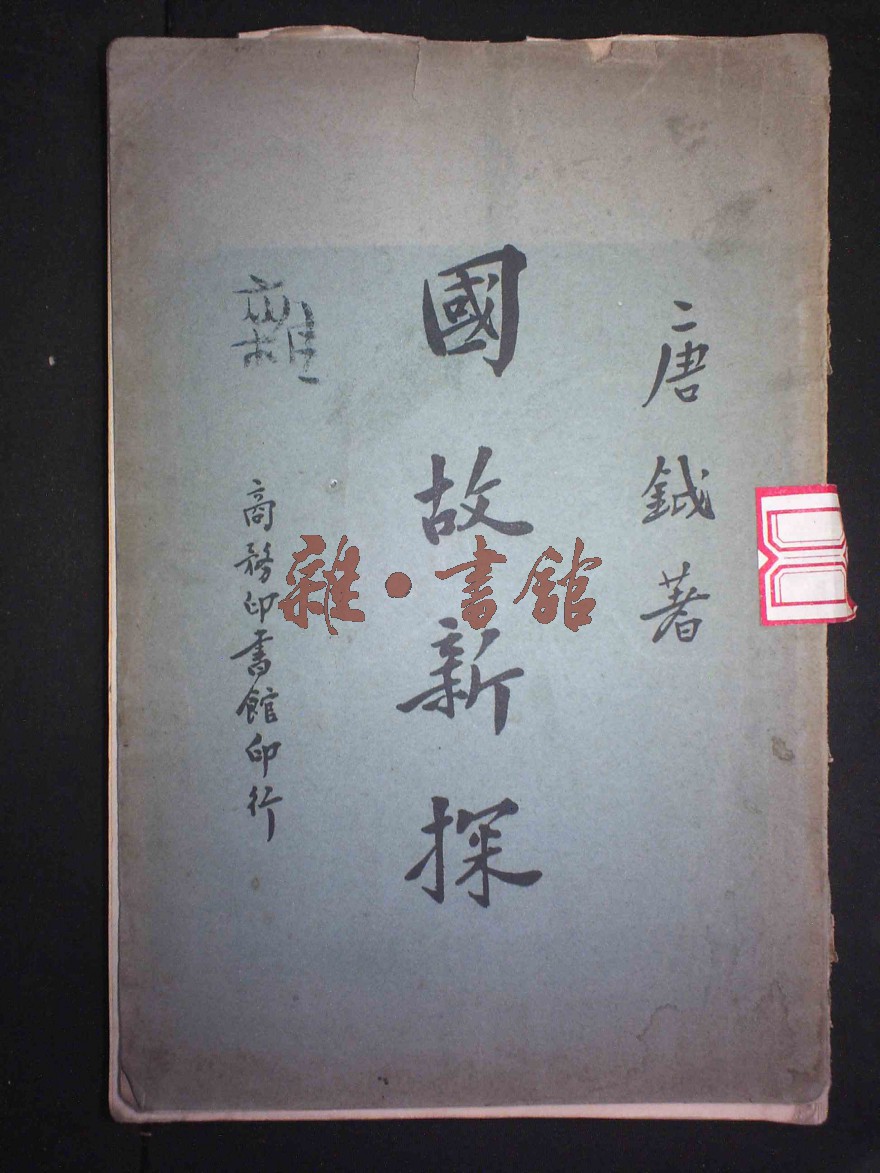 唐鉞著
國故新探
雜
商務印書館印行
雜•書館